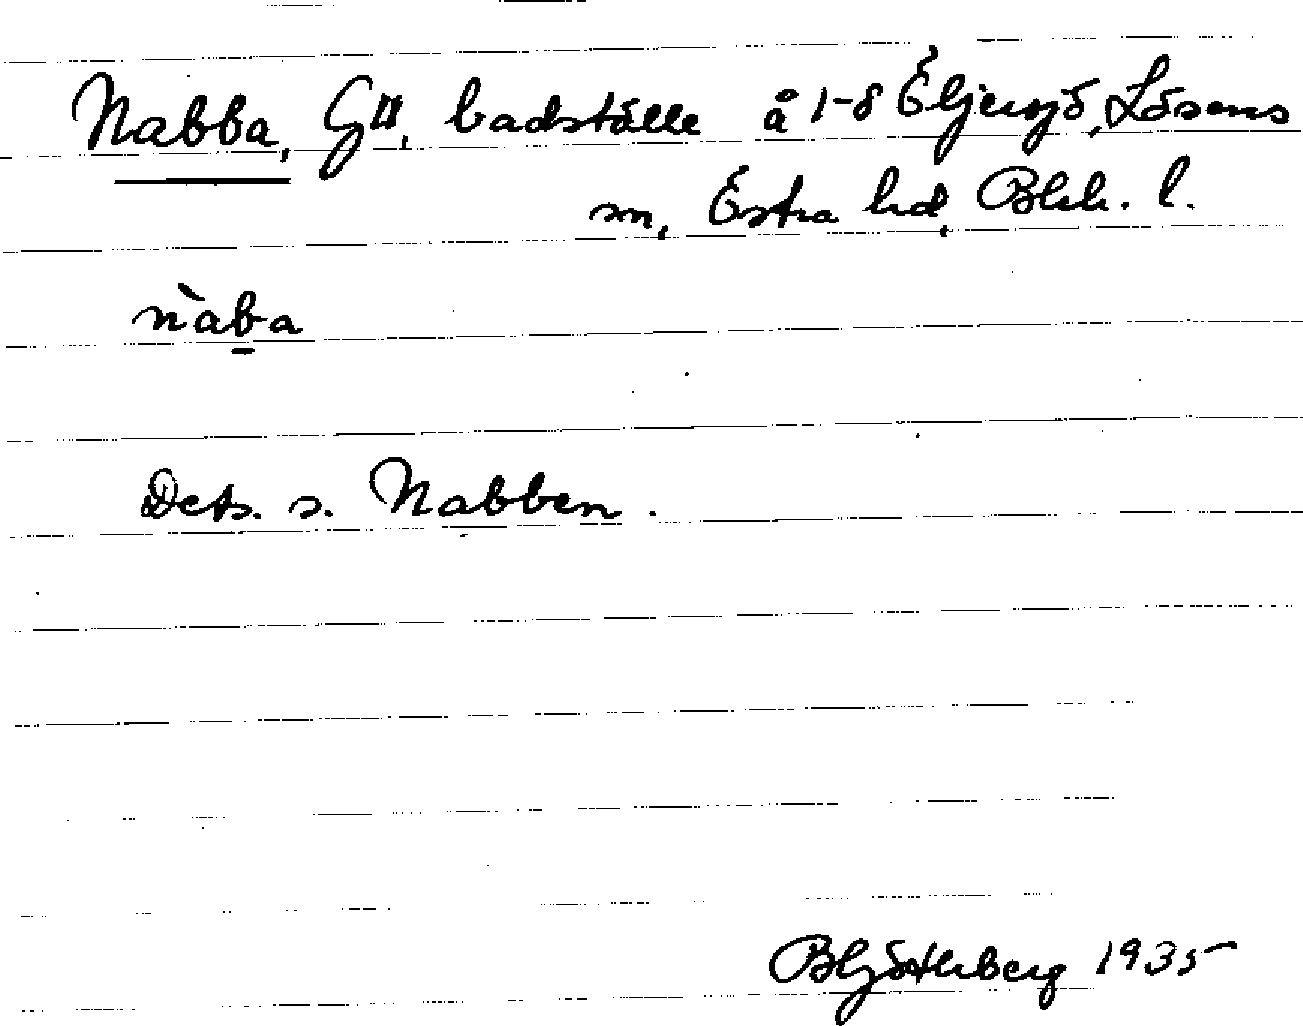 Nabba, G4, badställe å 1-8 Eljersjö, Lösens
sn, Östra hd, Blek. l.
nàba
Dets. s. Nabben.
B Ljöstberg 1935